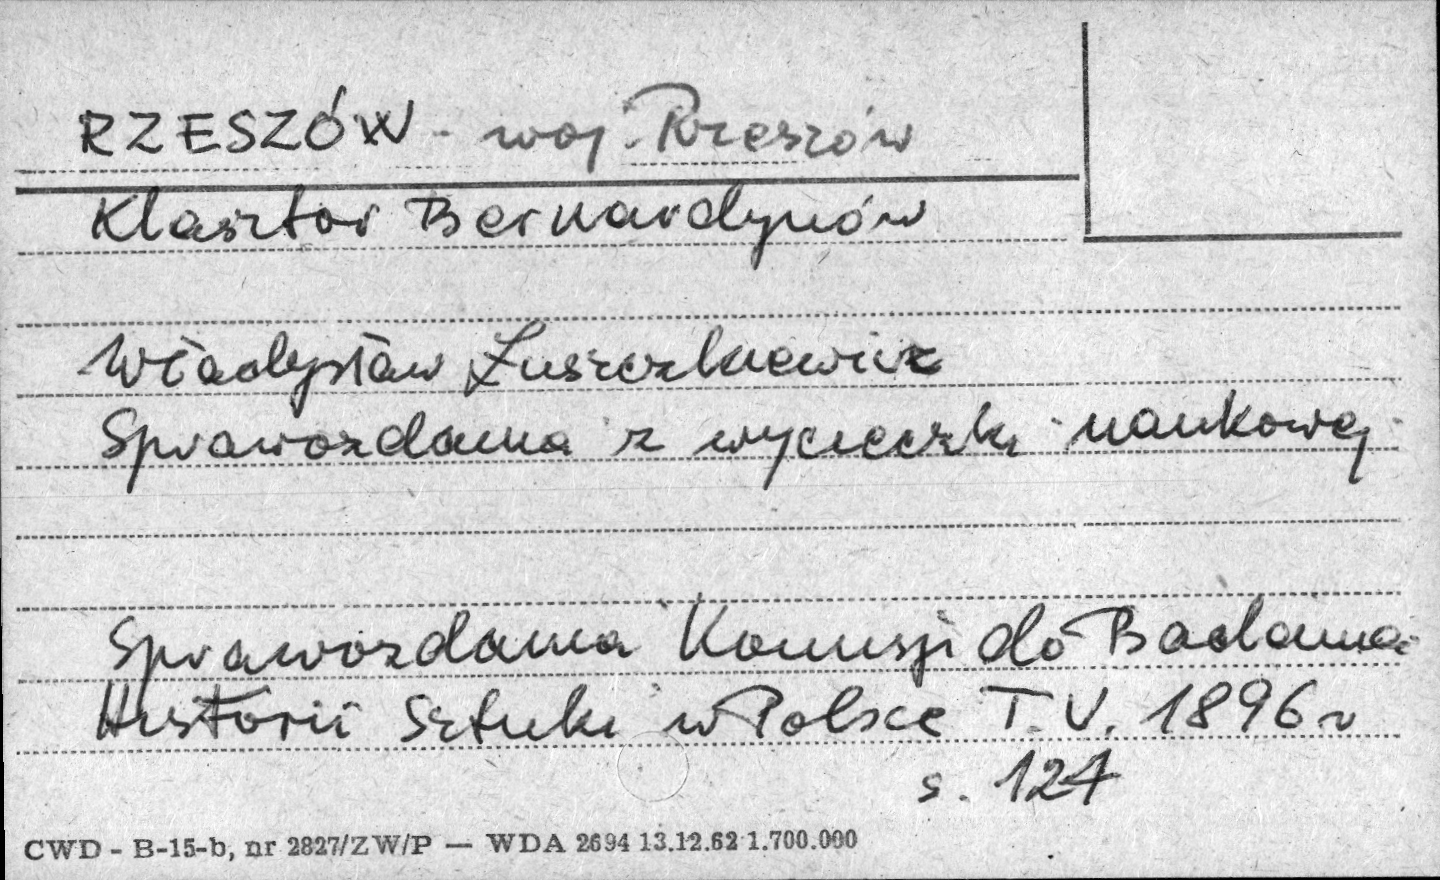 RZESZÓW - woj. Rzeszów
Klasztor Bernardynów
Władysław Łuszczkiewicz
Sprawozdania z wycieczki naukowej
Sprawozdania Komisji do Badania
Historii Sztuki w Polsce T. V. 1896 r
s. 124
CWD - B-15-b, nr 2827/ZW/P — WDA 2694 13.12.62 1.700.000